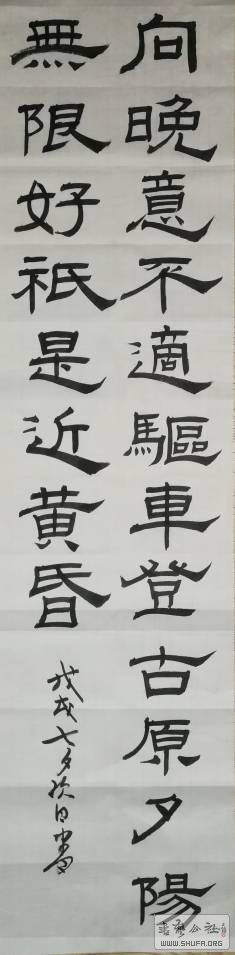 向晚意不適驅車登古原夕陽
無限好祇是近黃昏
戊戌七夕次日
書法公社
WWW.SHUFA.ORG